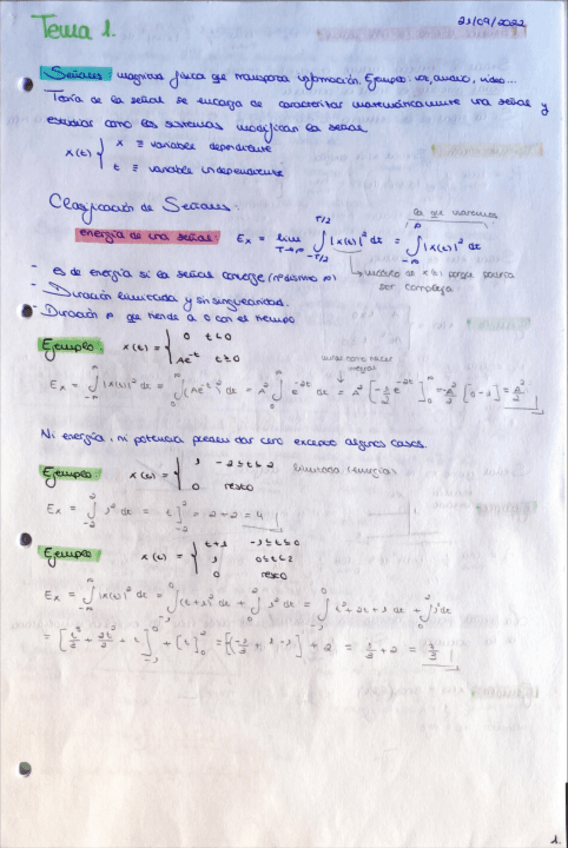 21/09/2022
Tema 1.
Señales: magnitud física que transporta información. Ejemplo: voz, audio, video...
Teoría de la señal se encarga de caracterizar matemáticamente una señal y
estudiar como los sistemas modifican la señal
x(t) { x ≡ variable dependiente
t ≡ variable independiente
Clasificación de Señales:
la que usaremos
energía de una señal: Ex = lim T→∞ ∫_{-T/2}^{T/2} |x(t)|² dt = ∫_{-∞}^{∞} |x(t)|² dt
módulo de x(t) porque podría
ser compleja
- es de energía si la señal converge (≠ ∞)
- Duración limitada y sin singularidad.
- Duración ∞ que tiende a 0 con el tiempo
Ejemplo: x(t) = { 0 t<0
Ae^{-t} t≥0
Ex = ∫_{-∞}^{∞} |x(t)|² dt = ∫_0^∞ (Ae^{-t})² dt = A² ∫_0^∞ e^{-2t} dt = A² [-1/2 e^{-2t}]_0^∞ = -A²/2 [0-1] = A²/2
Ni energía, ni potencia pueden dar cero excepto algunos casos.
Ejemplo: x(t) = { 1 -2≤t≤2 limitada (energía)
0 resto
Ex = ∫_{-2}^{2} 1² dt = t]_{-2}^{2} = 2+2 = 4
Ejemplo x(t) = { t+1 -1≤t≤0
1 0≤t≤2
0 resto
Ex = ∫_{-∞}^{∞} |x(t)|² dt = ∫_{-1}^{0} (t+1)² dt + ∫_0^2 1² dt = ∫_{-1}^{0} t²+2t+1 dt + ∫_0^2 1 dt
= [t³/3 + 2t²/2 + t]_{-1}^{0} + [t]_0^2 = [-(-1/3 + 1 - 1)] + 2 = 1/3 + 2 = 7/3
1.